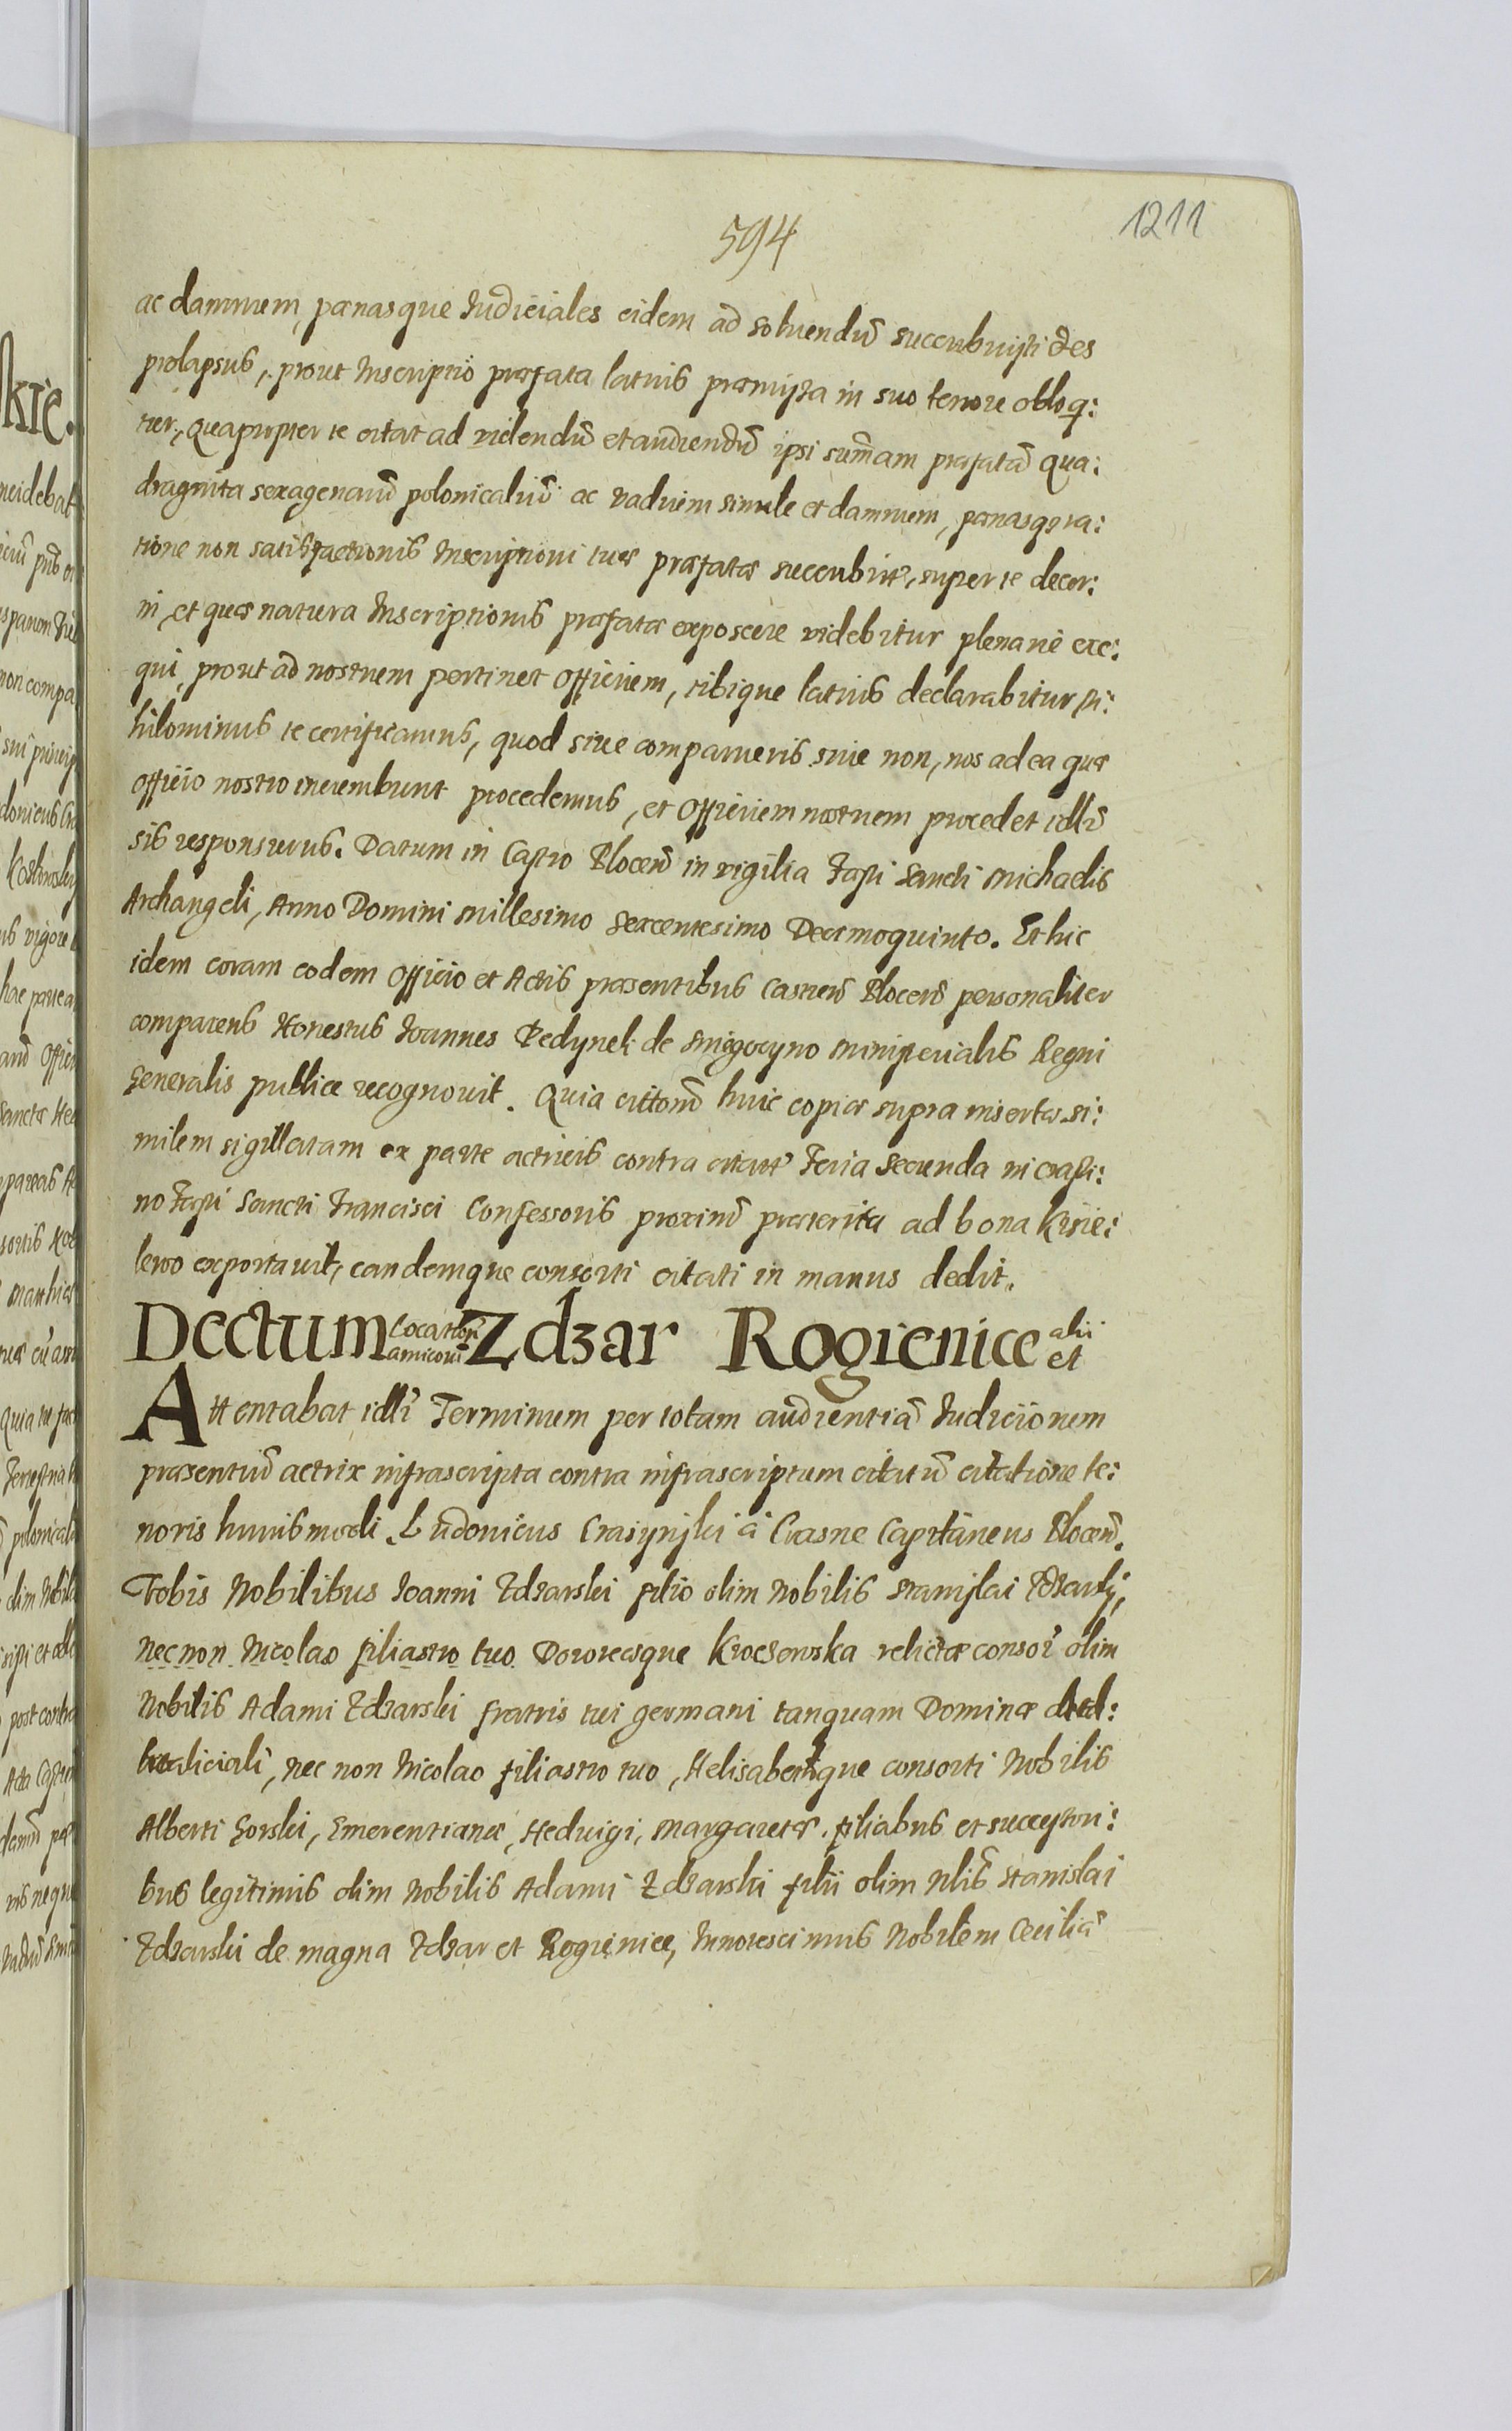 594
1211
ac damnum, pœnasque Iudiciales eidem ad soluendũ succubuisti des
prolapsus, prout Inscriptio præfata latius præmissa in suo tenore obloq:
tur, Quapropter te citat ad videndũ et audiendũ ipsi sum̃am præfatã Qua:
draginta sexagenarũ polonicaliũ ac vadium simile et damnum, pœnasq₃ ra:
tione non satisfactionis Inscriptioni tuæ præfatæ succubit̃, super te decer:
ni, et quæ natura Inscriptionis præfatæ exposcere videbitur plenariè exe:
qui, prout ad nostrum pertinet Officium, tibique latius declarabitur, Ni:
hilominus te certificamus, quod siue comparueris siue non, nos ad ea quæ
officio nostro incumbunt procedemus, et Officium nostrum procedet idℓℓũ
sis responsurus. Datum in Castro Plocen̄ in vigilia Festi Sancti Michaelis
Archangeli, Anno Domini Millesimo Sexcentesimo Decimoquinto. Et hic
idem coram eodem Officio et Actis præsentibus Castren̄ Plocen̄ personaliter
comparens Honestus Ioannes Pedynek de Smigocyno Ministerialis Regni
Generalis publice recognouit. Quia citt̃onẽ huic copiæ supra insertæ si:
milem sigillatam ex parte actricis contra citat̃ Feria Secunda in crasti:
no Festi Sancti Francisci Confessoris proximẽ præterita ad bona Kisie:
lewo exportauit, eandemque consorti citati in manus dedit.
Dectum Location̄ amicorũ Zdzar Rogienice alii et
Attentabat idℓℓĩ Terminum per totam audientiã Iudiciorum
præsentiũ actrix infrascripta contra infrascriptum citatũ citatione te:
noris huiusmodi. Ludouicus Crasynski à Crasne Capitaneus Plocen̄.
Vobis Nobilibus Ioanni Zdzarski filio olim Nobilis Stanislai Zdzarskj,
nec non Nicolao filiastro tuo Doroteæque Kroczewska relictæ consor̃ olim
Nobilis Adami Zdzarski fratris tui germani tanquam Dominæ
aduitaliciali, nec non Nicolao filiastro tuo, Helisabethque consorti Nobilis
Alberti Gorski, Emerentianæ, Heduigi, Margaretæ, filiabus et successori:
bus legitimis olim Nobilis Adami Zdzarski filii olim Nℓis̃ Stanislai
Zdzarski de magna Zdzar et Rogienice, Innotescimus Nobilem Ceciliã